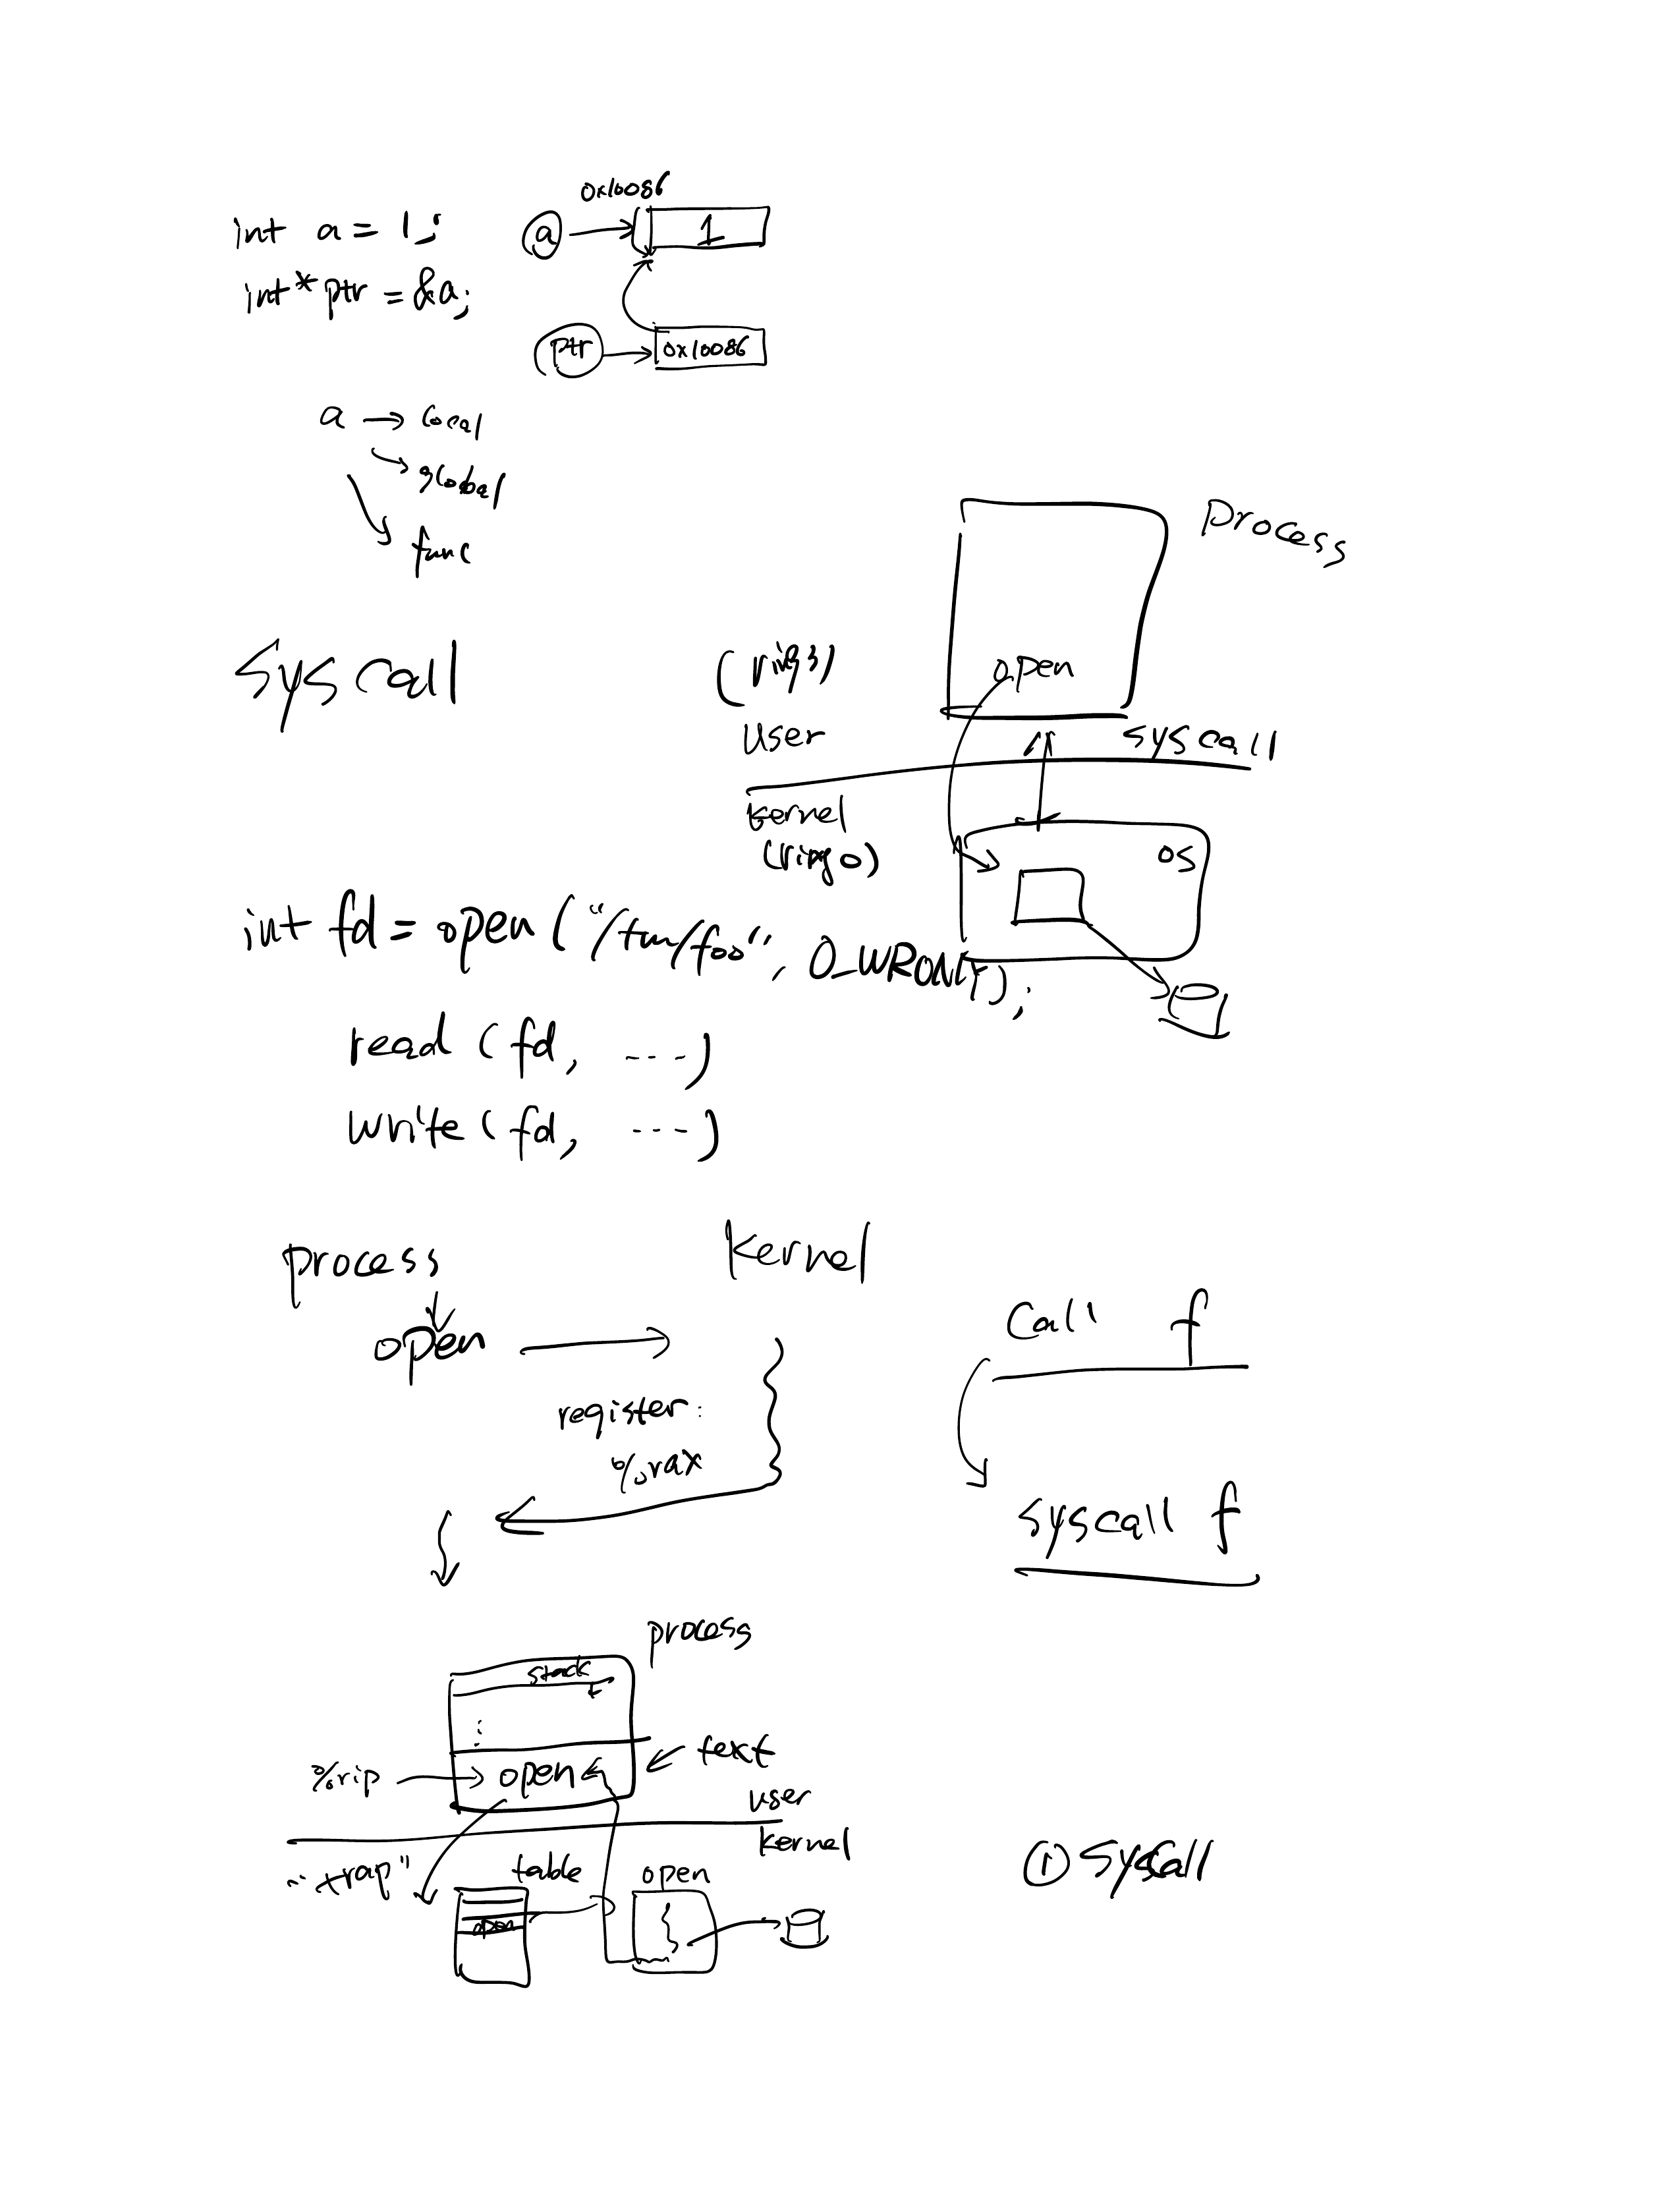 0x10086
int a = 1;
a
1
int* ptr = &a;
ptr
0x10086
a → local
global
func
process
syscall
(ring3)
open
user
syscall
kernel
(ring 0)
OS
int fd = open ("/tm/foo", O_WRONLY);
read (fd, ---)
write (fd, ---)
process
kernel
open
call f
register:
%rax
syscall f
process
stack
⋮
text
%rip
open
user
kernel
"trap"
table
open
open
① syscall